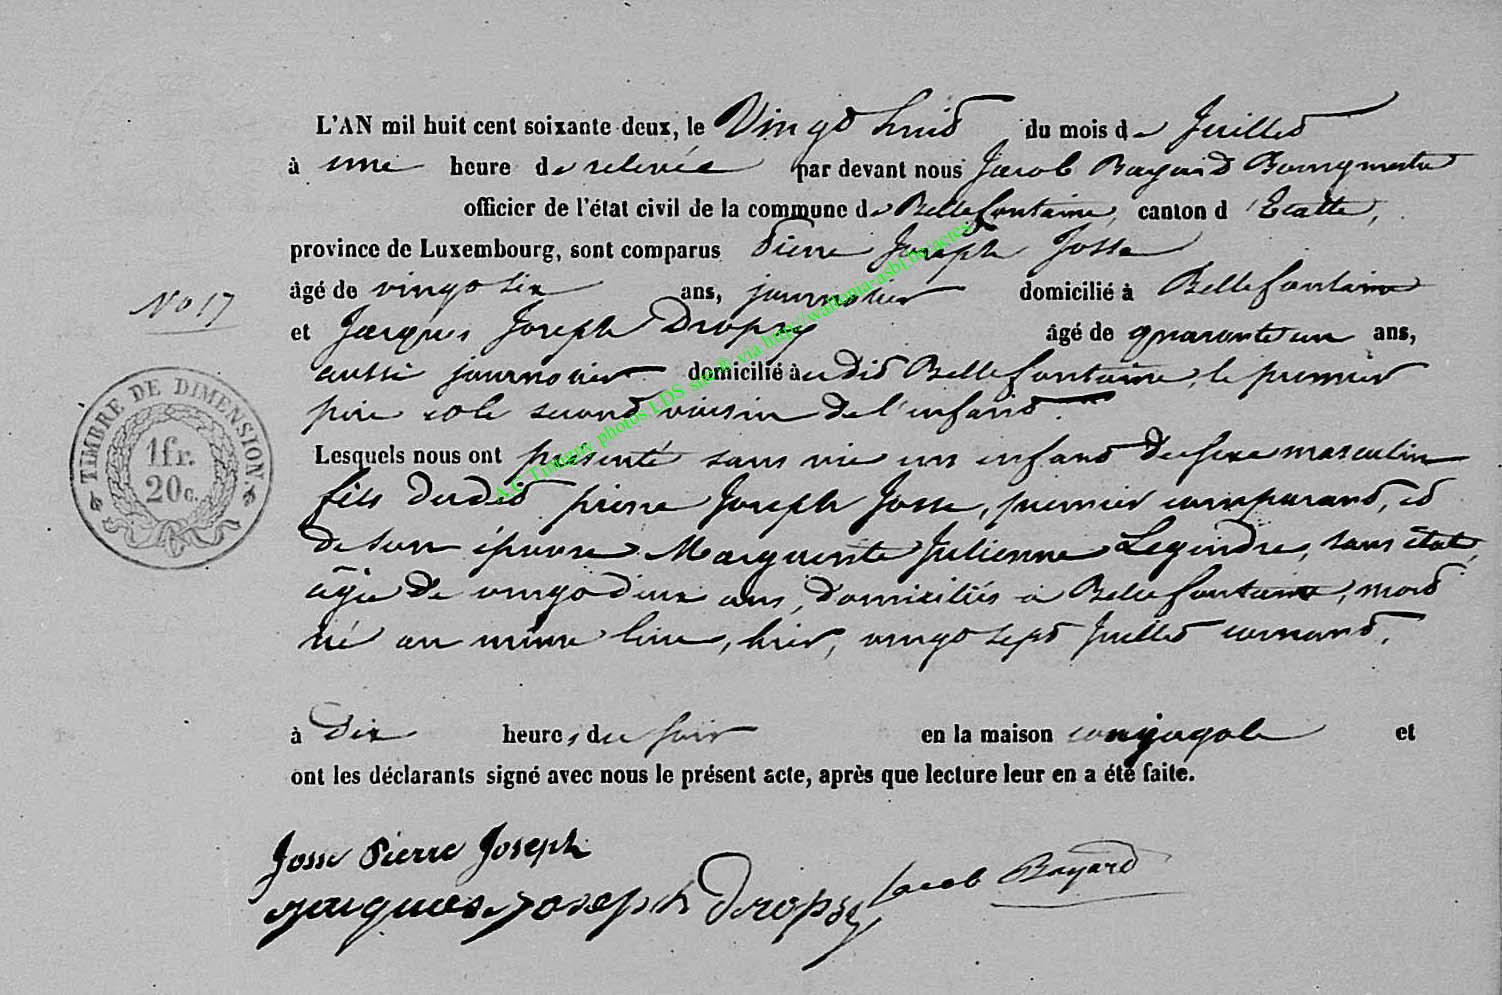 L'AN mil huit cent soixante-deux, le Vingt huit du mois de Juillet
à une heure de relevée par devant nous Jacob Bayard Bourgmestre
officier de l'état civil de la commune de Bellefontaine, canton d'Etalle,
province de Luxembourg, sont comparus Pierre Joseph Josse
No 17
âgé de vingt six ans, journalier domicilié à Bellefontaine
et Jacques Joseph Dropsy âgé de quarante un ans,
aussi journalier domicilié au dit Bellefontaine, le premier
père et le second voisin de l'enfant.
Lesquels nous ont présenté sans vie un enfant du sexe masculin
fils du dit pierre Joseph Josse, premier comparant, et
de son épouse Marguerite Julienne Legendre, sans état,
âgée de vingt deux ans, domiciliés à Bellefontaine, mort
né au même lieu, hier, vingt sept Juillet courant,
à Dix heures du soir en la maison conjugale et
ont les déclarants signé avec nous le présent acte, après que lecture leur en a été faite.
TIMBRE DE DIMENSION.
1 fr.
20 c.
Josse Pierre Joseph
jacques joseph Dropsy Jacob Bayard
A.C. Tintigny photos LDS sur @ via http://wallonia-asbl.be/actes